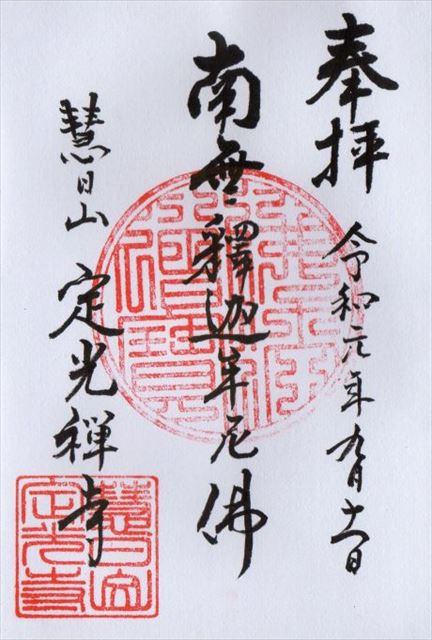 奉拝
令和元年九月十一日
南無釋迦牟尼佛
慧日山
定光禅寺
佛法僧寶
慧日山
定光寺